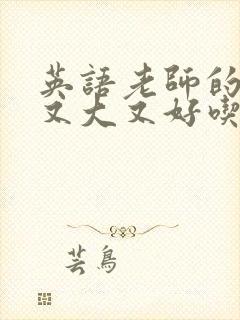 英語老師的
又大又好喫
芸鳥